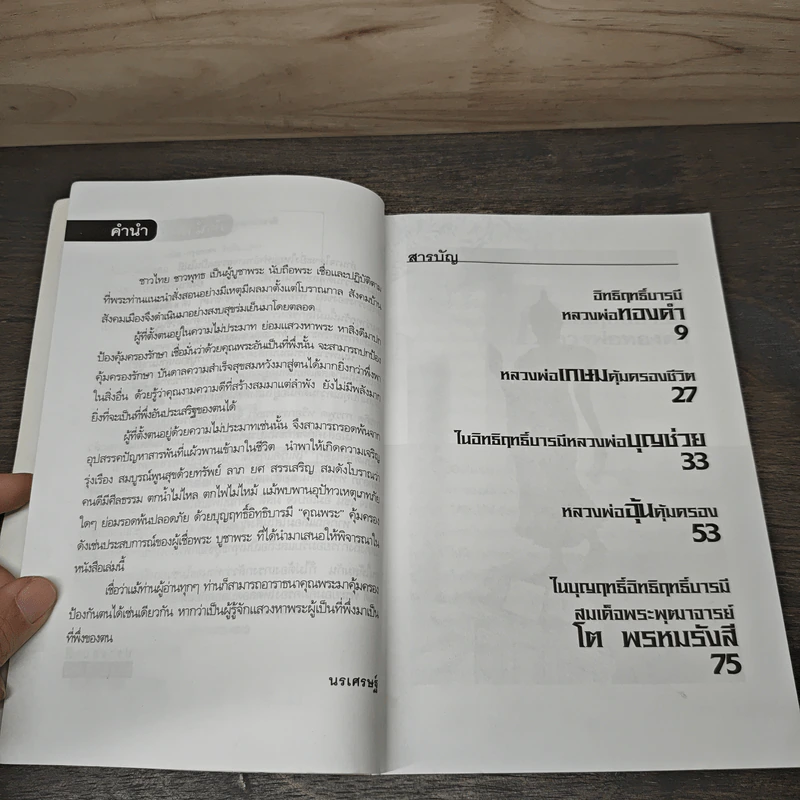 คำนำ
ชาวไทย ชาวพุทธ เป็นผู้บูชาพระ นับถือพระ เชื่อและปฏิบัติตาม
ที่พระท่านแนะนำสั่งสอนอย่างมีเหตุมีผลมาตั้งแต่โบราณกาล สังคมบ้าน
สังคมเมืองจึงดำเนินมาอย่างสงบสุขร่มเย็นมาโดยตลอด
ผู้ที่ตั้งตนอยู่ในความไม่ประมาท ย่อมแสวงหาพระ หาสิ่งดีมาปก
ป้องคุ้มครองรักษา เชื่อมั่นว่าด้วยคุณพระอันเป็นที่พึ่งนั้น จะสามารถปกป้อง
คุ้มครองรักษา บันดาลความสำเร็จสุขสมหวังมาสู่ตนได้มากยิ่งกว่าพึ่งพา
ในสิ่งอื่น ด้วยรู้ว่าคุณงามความดีที่สร้างสมมาแต่ลำพัง ยังไม่มีพลังมาก
ยิ่งที่จะเป็นที่พึ่งอันประเสริฐของตนได้
ผู้ที่ตั้งตนอยู่ด้วยความไม่ประมาทเช่นนั้น จึงสามารถรอดพ้นจาก
อุปสรรคปัญหาสารพันที่แผ้วพานเข้ามาในชีวิต นำพาให้เกิดความเจริญ
รุ่งเรือง สมบูรณ์พูนสุขด้วยทรัพย์ ลาภ ยศ สรรเสริญ สมดังโบราณว่า
คนดีมีศีลธรรม ตกน้ำไม่ไหล ตกไฟไม่ไหม้ แม้พบพานอุปัทวเหตุเภทภัย
ใดๆ ย่อมรอดพ้นปลอดภัย ด้วยบุญฤทธิ์อิทธิบารมี “คุณพระ” คุ้มครอง
ดังเช่นประสบการณ์ของผู้เชื่อพระ บูชาพระ ที่ได้นำมาเสนอให้พิจารณาใน
หนังสือเล่มนี้
เชื่อว่าแม้ท่านผู้อ่านทุกๆ ท่านก็สามารถอาราธนาคุณพระมาคุ้มครอง
ป้องกันตนได้เช่นเดียวกัน หากว่าเป็นผู้รู้จักแสวงหาพระผู้เป็นที่พึ่งมาเป็น
ที่พึ่งของตน
นรเศรษฐ์
สารบัญ
อิทธิฤทธิ์บารมี
หลวงพ่อทองดำ
9
หลวงพ่อเกษมคุ้มครองชีวิต
27
ในอิทธิฤทธิ์บารมีหลวงพ่อบุญช่วย
33
หลวงพ่ออุ้นคุ้มครอง
53
ในบุญฤทธิ์อิทธิฤทธิ์บารมี
สมเด็จพระพุฒาจารย์
โต พรหมรังสี
75